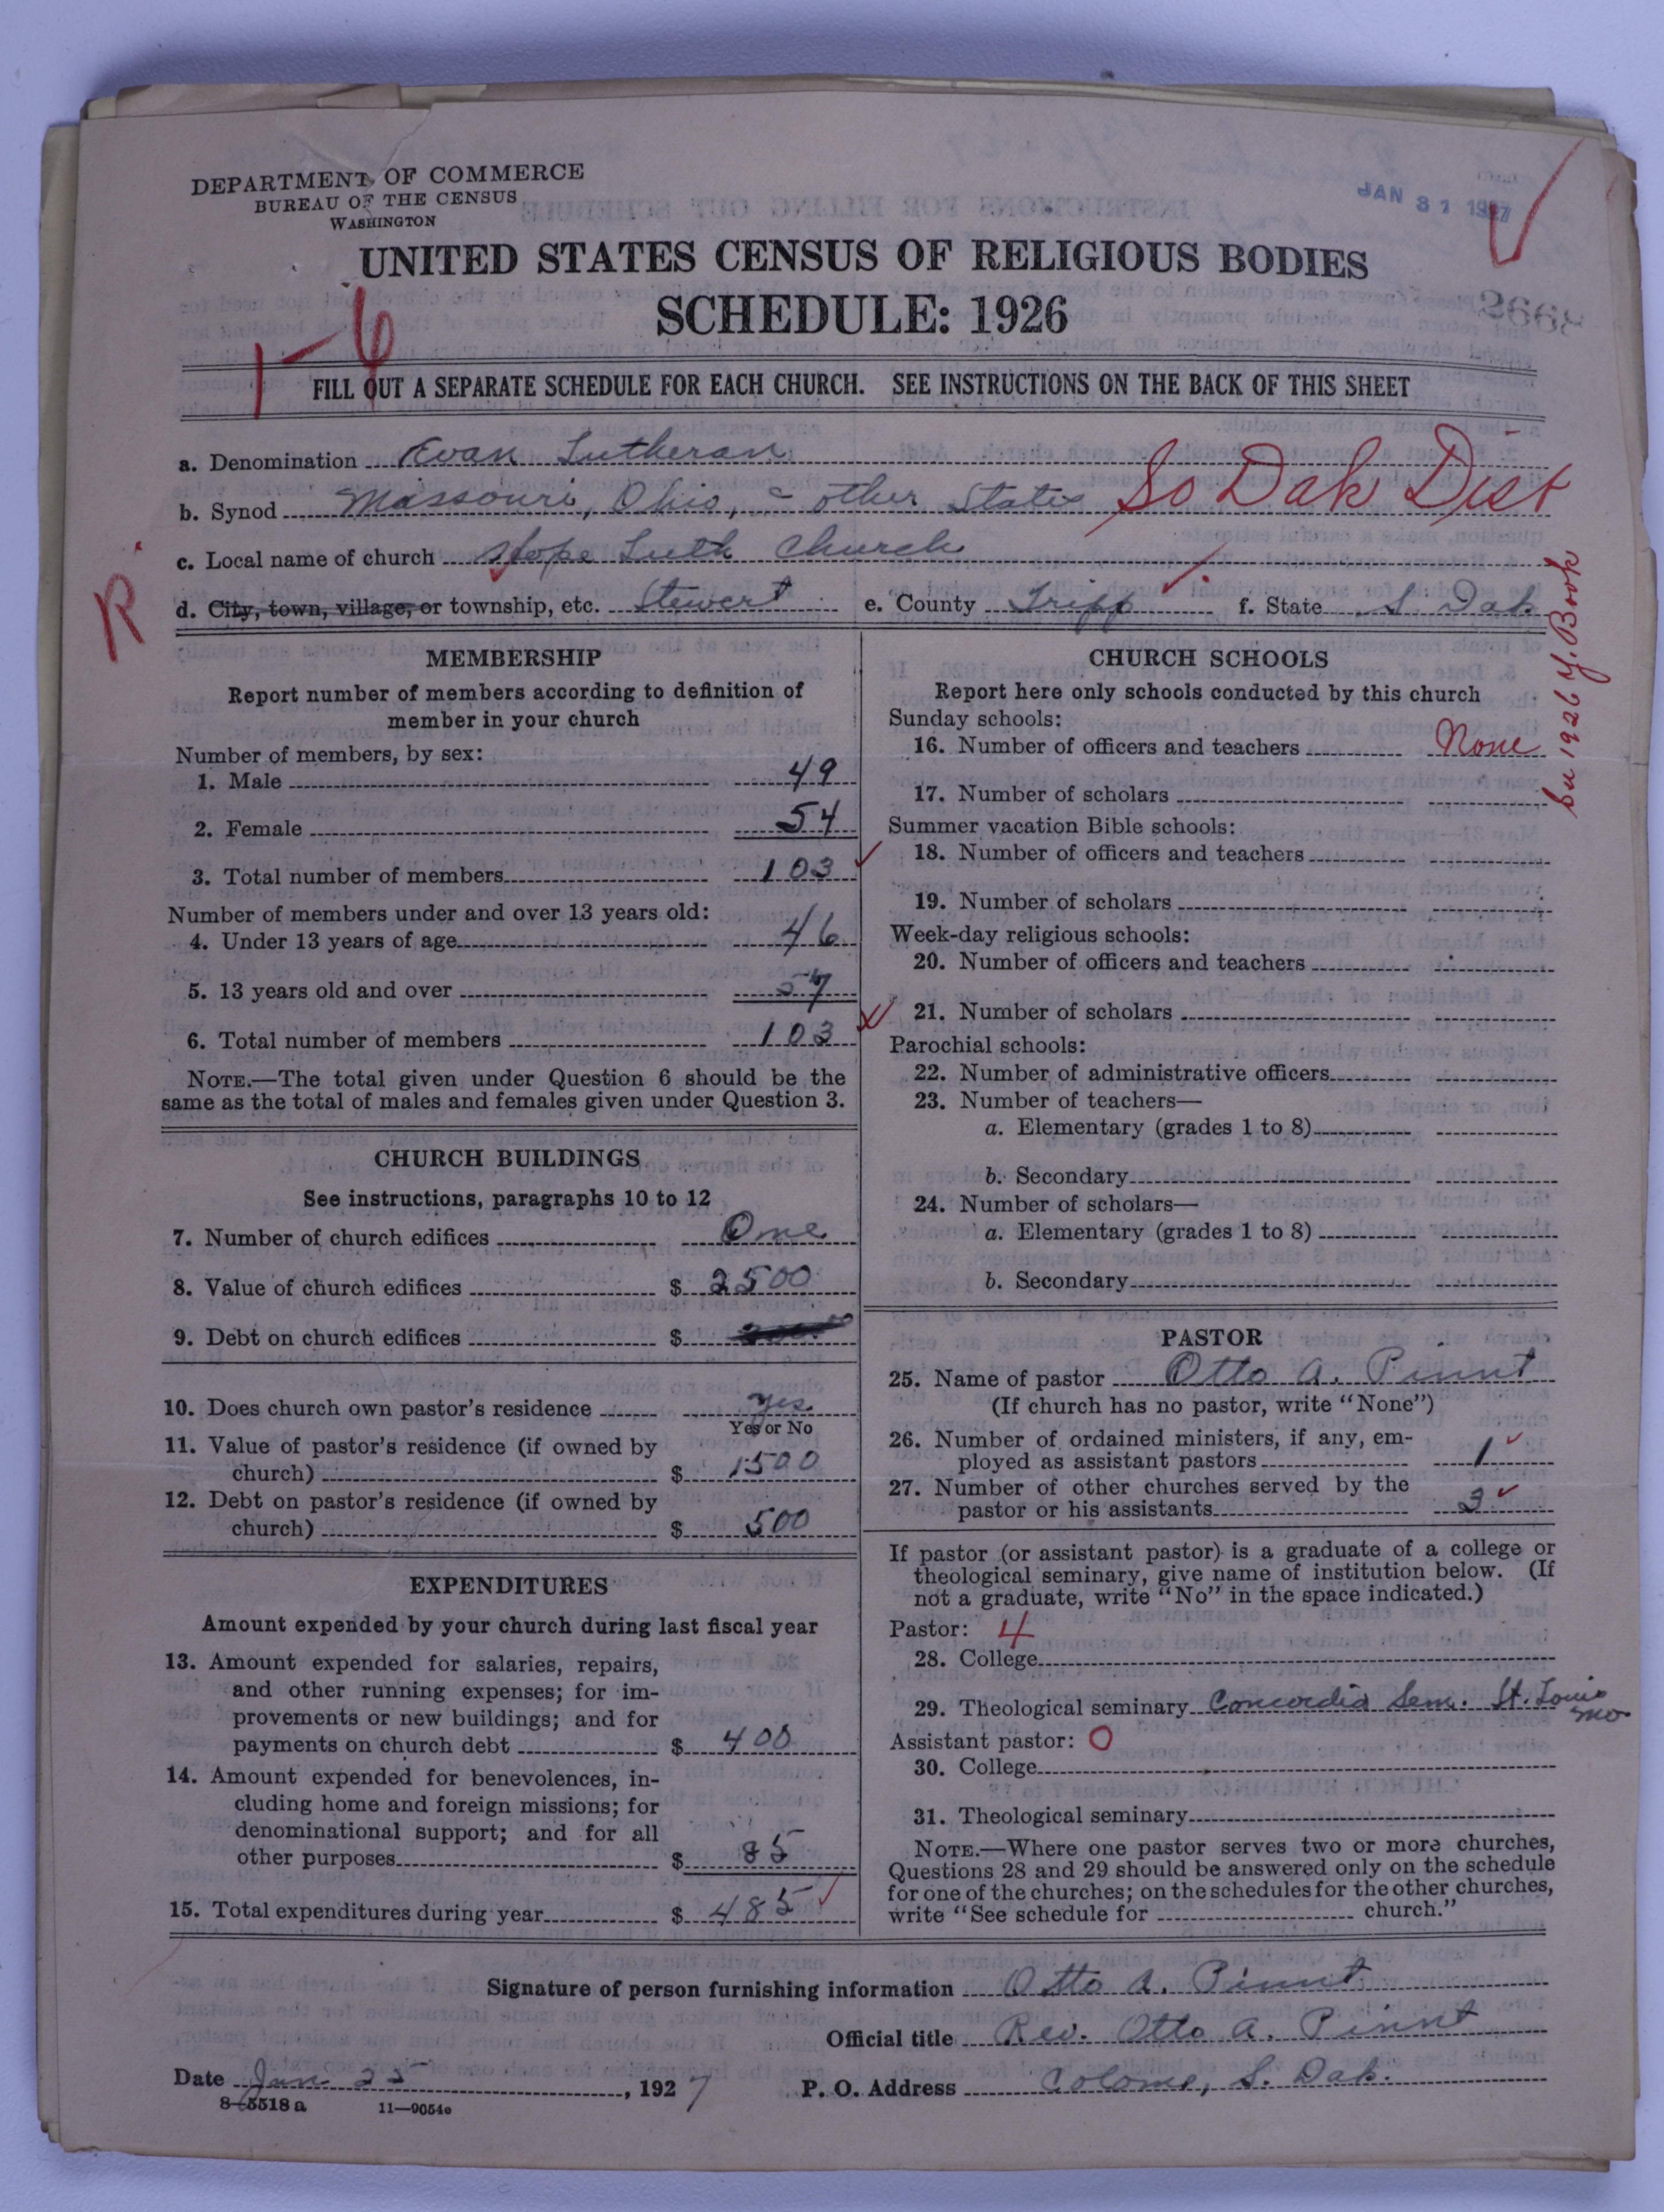 DEPARTMENT OF COMMERCE
BUREAU OF THE CENSUS
WASHINGTON
JAN 31 1927
UNITED STATES CENSUS OF RELIGIOUS BODIES
SCHEDULE: 1926
1-6
FILL OUT A SEPARATE SCHEDULE FOR EACH CHURCH. SEE INSTRUCTIONS ON THE BACK OF THIS SHEET
a. Denomination Evan Lutheran
b. Synod Missouri, Ohio, = other States So Dak Dist
c. Local name of church Hope Luth Church
R
d. City, town, village, or township, etc. Stewert e. County Tripp f. State S Dak
in 1926 Y. Book
MEMBERSHIP
Report number of members according to definition of
member in your church
Number of members, by sex:
1. Male 49
2. Female 54
3. Total number of members 103
Number of members under and over 13 years old:
4. Under 13 years of age 46
5. 13 years old and over 57
6. Total number of members 103
NOTE.—The total given under Question 6 should be the
same as the total of males and females given under Question 3.
CHURCH BUILDINGS
See instructions, paragraphs 10 to 12
7. Number of church edifices One
8. Value of church edifices $ 2500
9. Debt on church edifices $
10. Does church own pastor's residence Yes
Yes or No
11. Value of pastor's residence (if owned by
church) $ 1500
12. Debt on pastor's residence (if owned by
church) $ 500
EXPENDITURES
Amount expended by your church during last fiscal year
13. Amount expended for salaries, repairs,
and other running expenses; for im-
provements or new buildings; and for
payments on church debt $ 400
14. Amount expended for benevolences, in-
cluding home and foreign missions; for
denominational support; and for all
other purposes $ 85
15. Total expenditures during year $ 485
CHURCH SCHOOLS
Report here only schools conducted by this church
Sunday schools:
16. Number of officers and teachers None
17. Number of scholars
Summer vacation Bible schools:
18. Number of officers and teachers
19. Number of scholars
Week-day religious schools:
20. Number of officers and teachers
21. Number of scholars
Parochial schools:
22. Number of administrative officers
23. Number of teachers—
a. Elementary (grades 1 to 8)
b. Secondary
24. Number of scholars—
a. Elementary (grades 1 to 8)
b. Secondary
PASTOR
25. Name of pastor Otto A. Pinnt
(If church has no pastor, write "None")
26. Number of ordained ministers, if any, em-
ployed as assistant pastors 1
27. Number of other churches served by the
pastor or his assistants 3
If pastor (or assistant pastor) is a graduate of a college or
theological seminary, give name of institution below. (If
not a graduate, write "No" in the space indicated.)
Pastor: 4
28. College
29. Theological seminary Concordia Sem. St. Louis
Mo.
Assistant pastor: O
30. College
31. Theological seminary
NOTE.—Where one pastor serves two or more churches,
Questions 28 and 29 should be answered only on the schedule
for one of the churches; on the schedules for the other churches,
write "See schedule for church."
Signature of person furnishing information Otto A. Pinnt
Official title Rev. Otto A. Pinnt
Date Jan 25, 1927 P. O. Address Colome, S. Dak.
8-5518 a 11—9054e